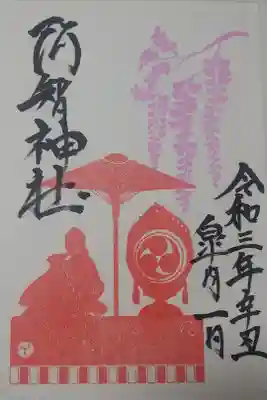 阿智神社
令和三年辛丑
皐月一日